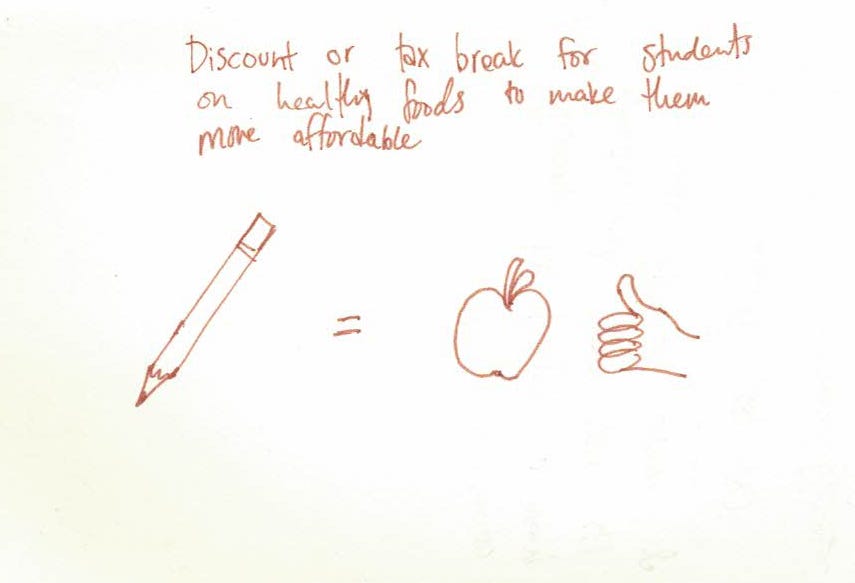 Discount or tax break for students
on healthy foods to make them
more affordable
=